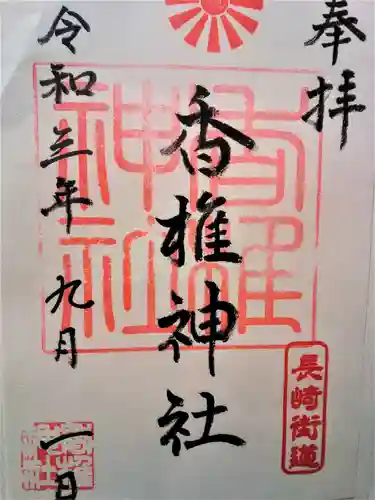 奉拝
香椎神社
令和三年九月一日
香椎神社
長崎街道